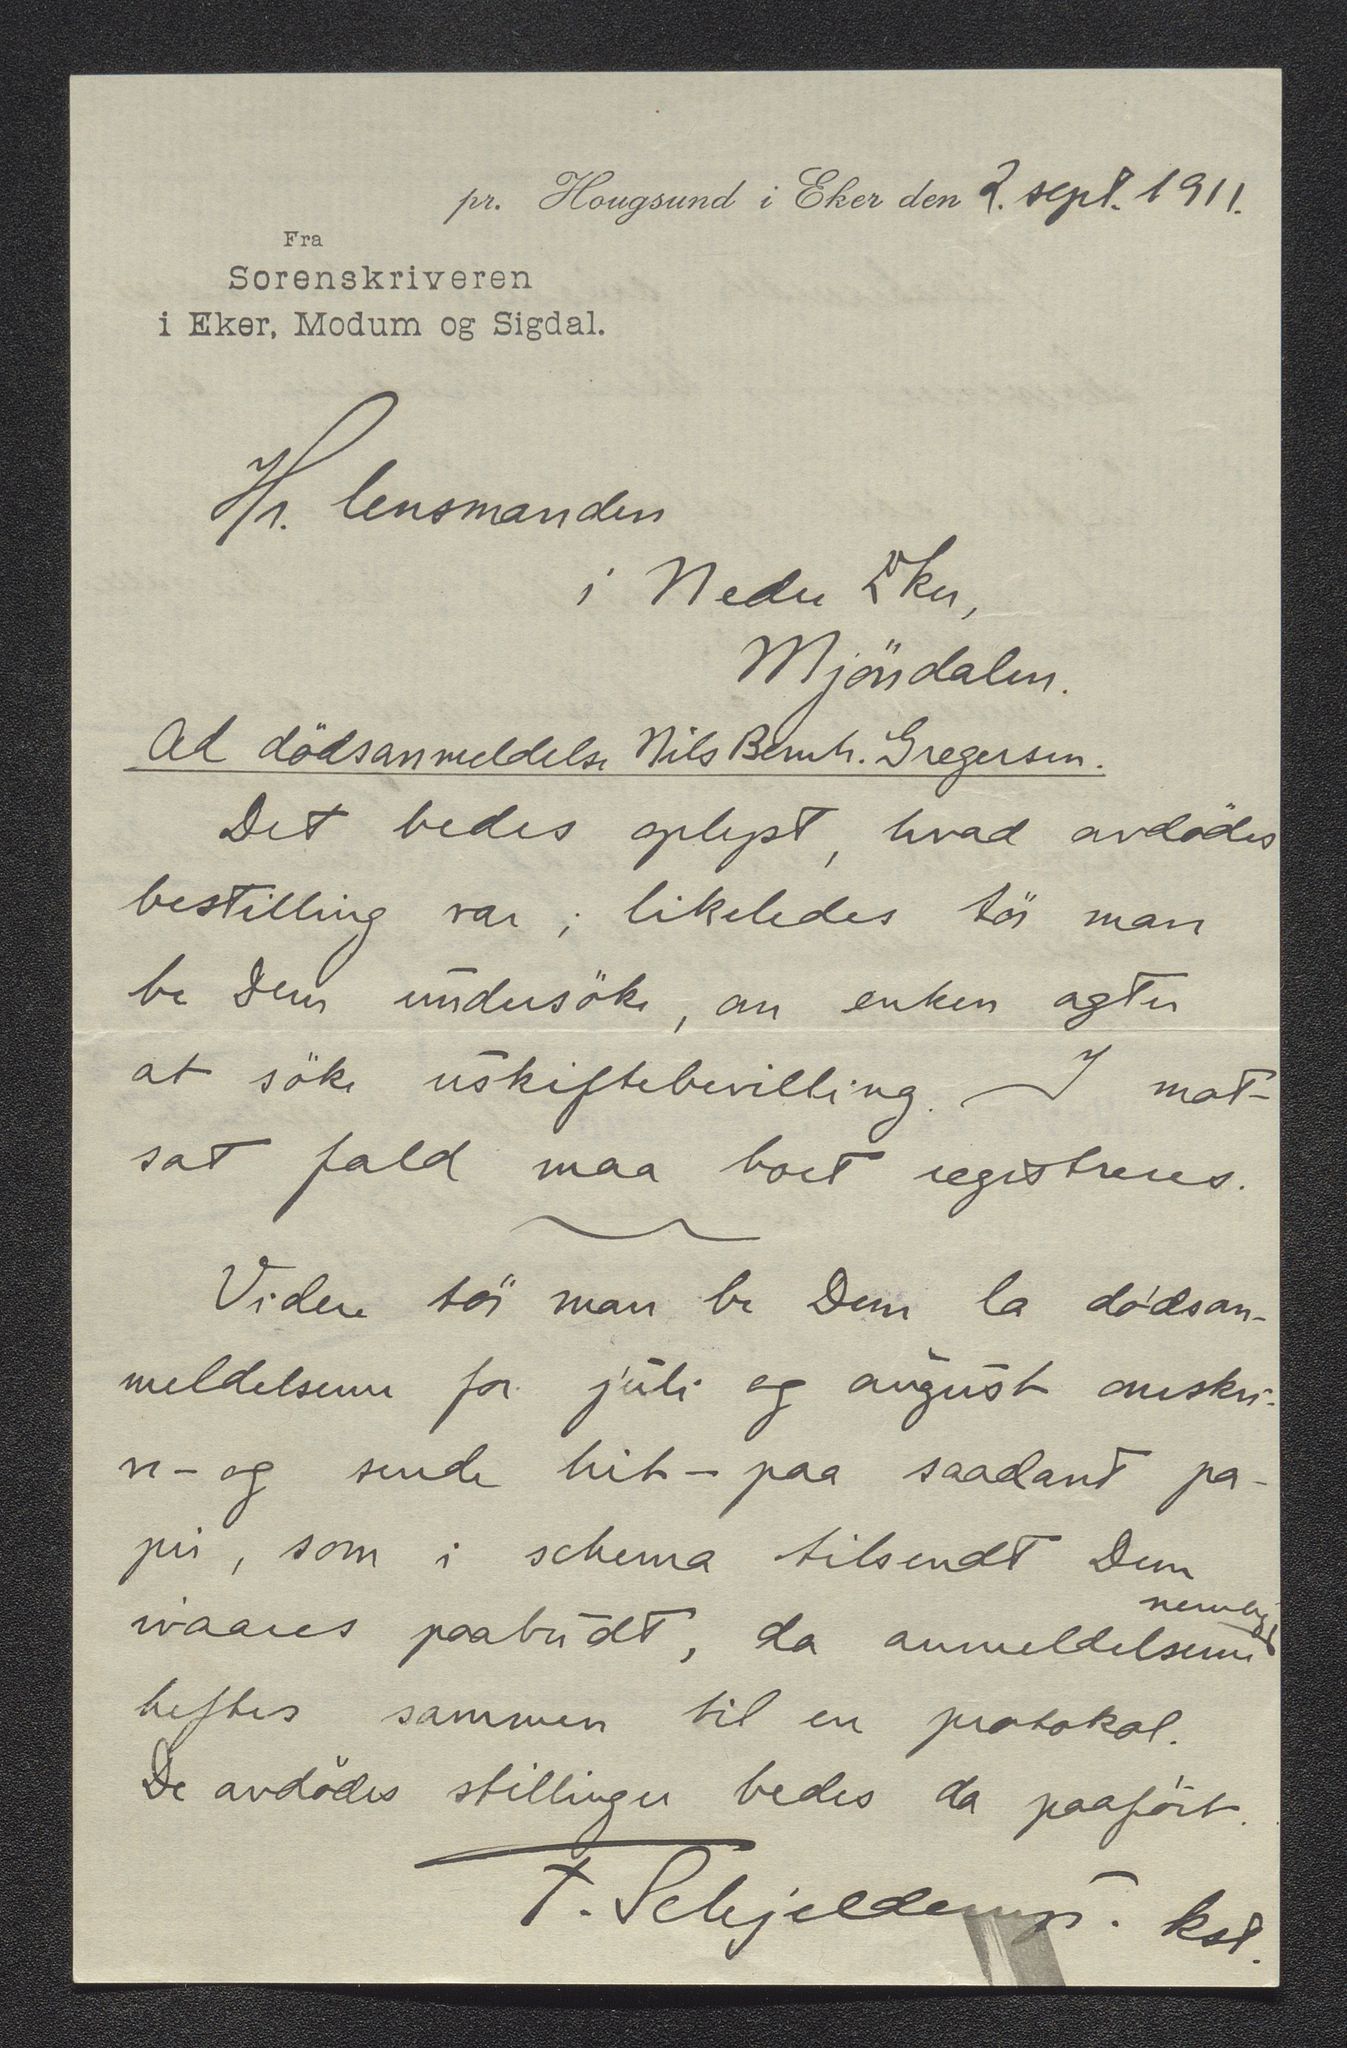 pr. Hougsund i Eker den 2. sept. 1911.
Fra
Sorenskriveren
i Eker, Modum og Sigdal.
Hr. lensmanden
i Nedre Eker,
Mjöndalen.
Ad dödsanmeldelse Nils Bernh. Gregersen.
Det bedes oplyst, hvad avdödes
bestilling var; likeledes tör man
be Dem undersöke, om enken agter
at söke uskiftebevilling. I mot-
sat fald maa boet registreres.
Videre tör man be Dem la dödsan-
meldelserne for juli og august omskri-
ve - og sende hit - paa saadant pa-
pir, som i schema tilsendt Dem
ivaares paabudt, da anmeldelserne nemlig
heftes sammen til en protokol.
De avdödes stillinger bedes da paafört.
T. Schjelderup. kst.